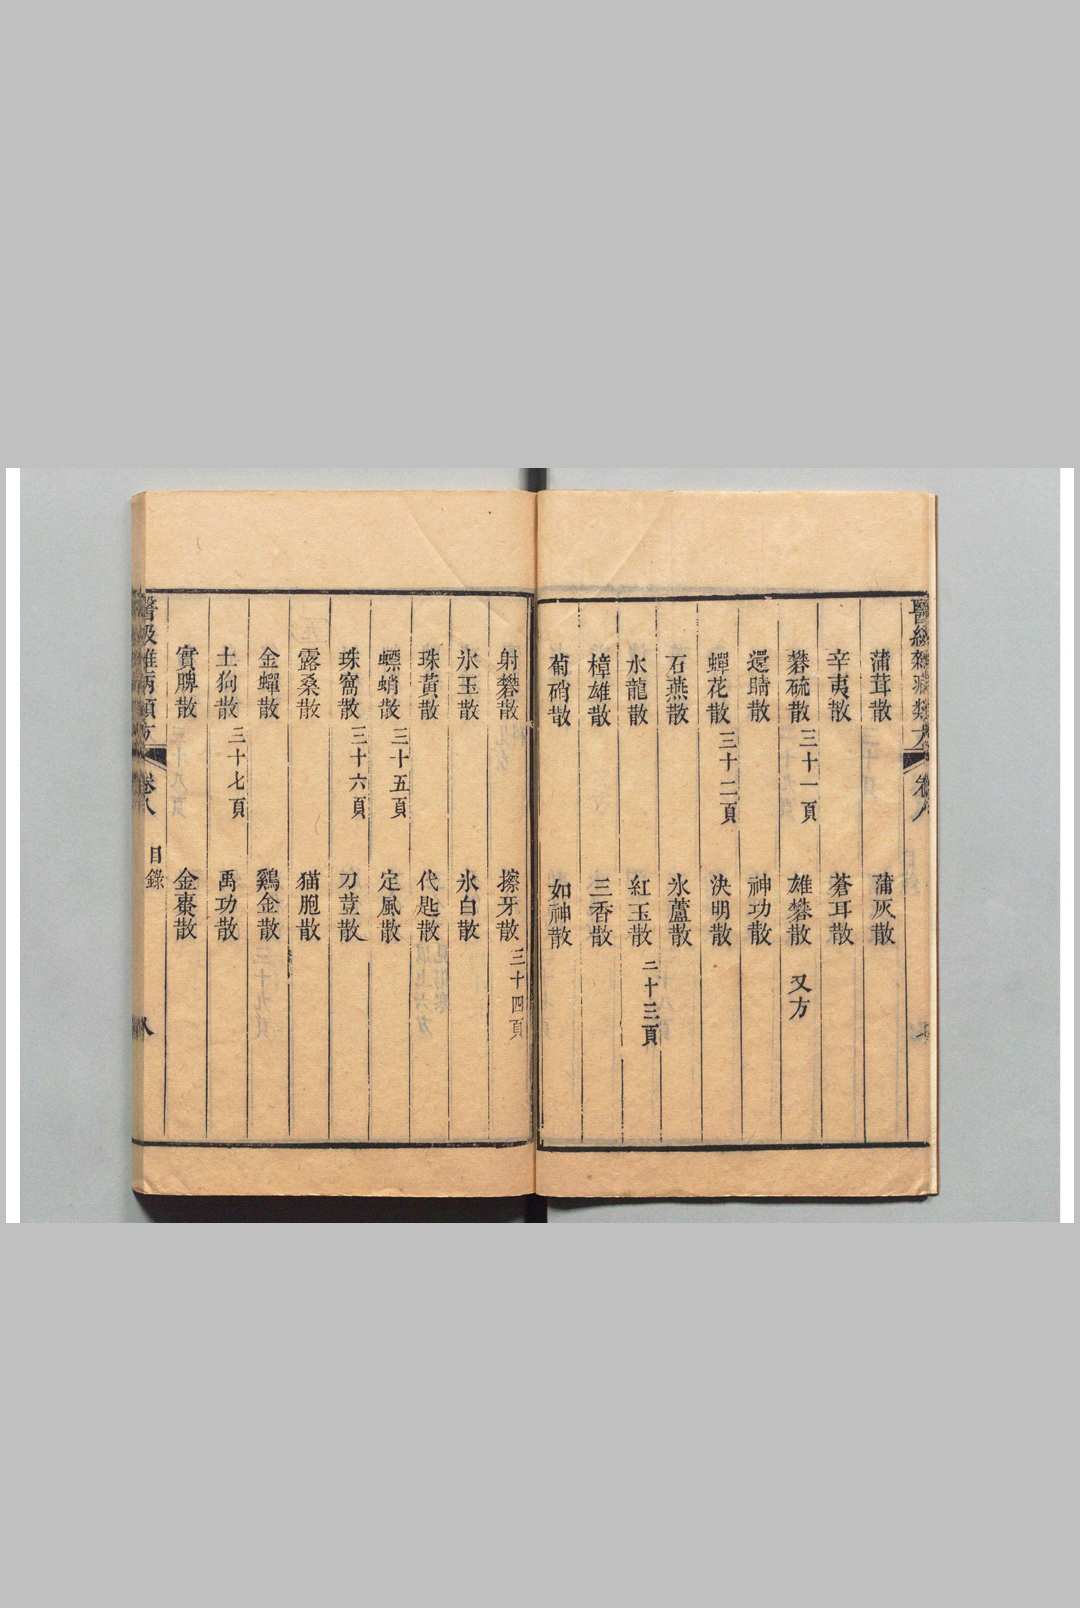 蒲茸散 蒲灰散
辛夷散 蒼耳散
礬硫散 三十一頁 雄礬散 又方
還睛散 神功散
蟬花散 三十二頁 決明散
石燕散 氷蘆散
水龍散 紅玉散 三十三頁
樟雄散 三香散
葡硝散 如神散
射礬散 擦牙散 三十四頁
氷玉散 氷白散
珠黃散 代匙散
螵蛸散 三十五頁 定風散
珠窩散 三十六頁 刀荳散
露桑散 猫胞散
金蟬散 鷄金散
土狗散 三十七頁 禹功散
實脾散 金棗散
卷八 目錄 八